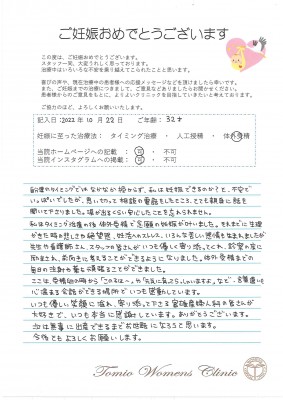 ご妊娠おめでとうございます
この度は、ご妊娠おめでとうございます。
スタッフ一同、大変うれしく思っております。
治療中はいろいろな不安を乗り越えてこられたことと思います。
喜びの声や、現在治療中の患者様への応援メッセージなどを頂けましたら幸いです。
また、ご妊娠までの治療につきまして、ご意見などありましたらお聞かせください。
患者様からのご意見をもとに、よりよいクリニックを目指していきたいと考えております。
ご協力のほど、よろしくお願いいたします。
記入日：2022年 10月 22日 ご年齢： 32才
妊娠に至った治療法： タイミング治療 ・ 人工授精 ・ 体外受精
当院ホームページへの記載： 可 ・ 不可
当院インスタグラムへの掲載： 可 ・ 不可
自己流のタイミングではなかなか授からず、私は妊娠できるのか？と、不安で
いっぱいでしたが、思い切って相談の電話をしたところ、とても親身に話を
聞いて下さりました。涙が出るくらい安心したことを忘れられません。
私はタイミング治療の後 体外受精で念願の妊娠が叶いました。それまでに生理
がきた時の悲しさや絶望感、妊活へのストレス、いろんな苦しい感情もありましたが
先生や看護師さん、スタッフの皆さんがいつも優しく寄り添ってくれ、診堂の度に
励まされ、前向きに考えることができるようになりました。体外受精までの
毎日の注射や薬も頑張ることができました。
ここは、受精卵の時から「この子は〜」や「元気に育ってらっしゃいますよ」など、言葉遣いも
心温まる会話ができる場所でいつも感動しています。
いつも優しい笑顔に溢れ、寄り添って下さる富雄産婦人科の皆さんが
大好きで、いつも本当に感謝しています。ありがとうございます。
次は無事に出産できるまでお世話になろうと思います。
今後もよろしくお願いします。
Tomio Womens Clinic